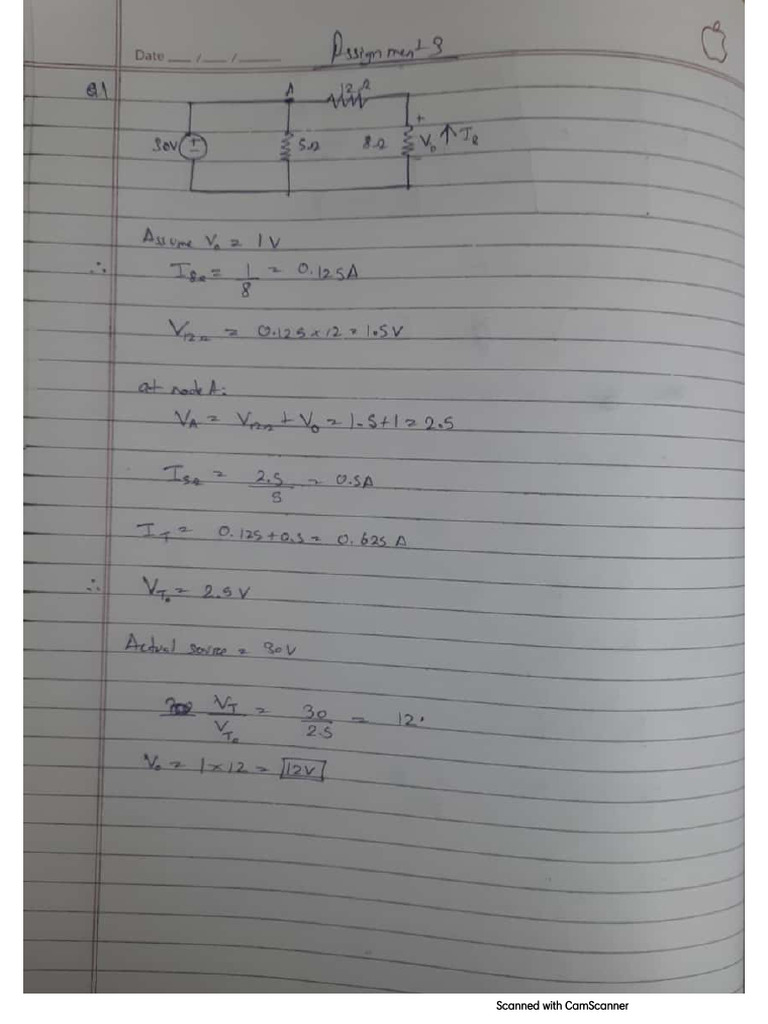 Date __/__/__
Assignment 3
Q1
A
12Ω
30V
5Ω
8Ω
+
V₀ ↑ I₈
Assume V₀ = 1V
∴ I₈Ω = 1/8 = 0.125A
V₁₂Ω = 0.125 × 12 = 1.5V
at node A:
V_A = V₁₂Ω + V₀ = 1.5 + 1 = 2.5
I₅Ω = 2.5/5 = 0.5A
I_T = 0.125 + 0.5 = 0.625 A
∴ V_T₀ = 2.5V
Actual source = 30V
V_T/V_T₀ = 30/2.5 = 12.
V₀ = 1 × 12 = 12V
Scanned with CamScanner